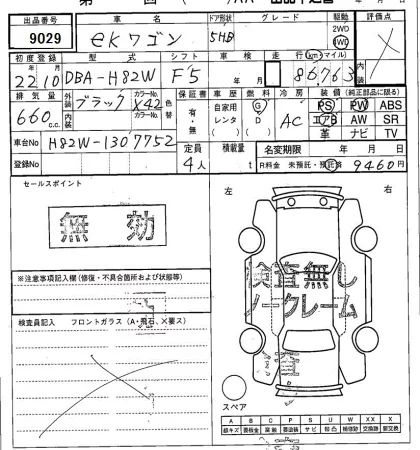 出品番号 車名 ドア形状 グレード 駆動 評価点
9029 ekワゴン 5HB 2WD 4WD ×
初度登録 型式 シフト 車検 走行(km・マイル)
22年10月 DBA-H82W F5 年 月 86,763
排気量 外装 ブラック カラーNo. X42 色替 保証書 車歴 燃料 冷房 装備(純正部品に限る)
660c.c. 内装 カラーNo. 有・無 自家用 G AC PS PW ABS
レンタ D エアB AW SR
( ) ( ) 革 ナビ TV
車台No H82W-1307752 定員 積載量 名変期限 年 月 日
登録No 4人 t R料金 未預託・預託済 9460円
セールスポイント
無効
左 右
※注意事項記入欄(修復・不具合箇所および状態等)
検査無し
ノークレーム
検査員記入 フロントガラス(A・飛石、×要ス)
スペア
A B C P S U W X XX
線キズ 要板金 腐蝕 要塗装 サビ 凹凸 補修跡 交換跡 要交換